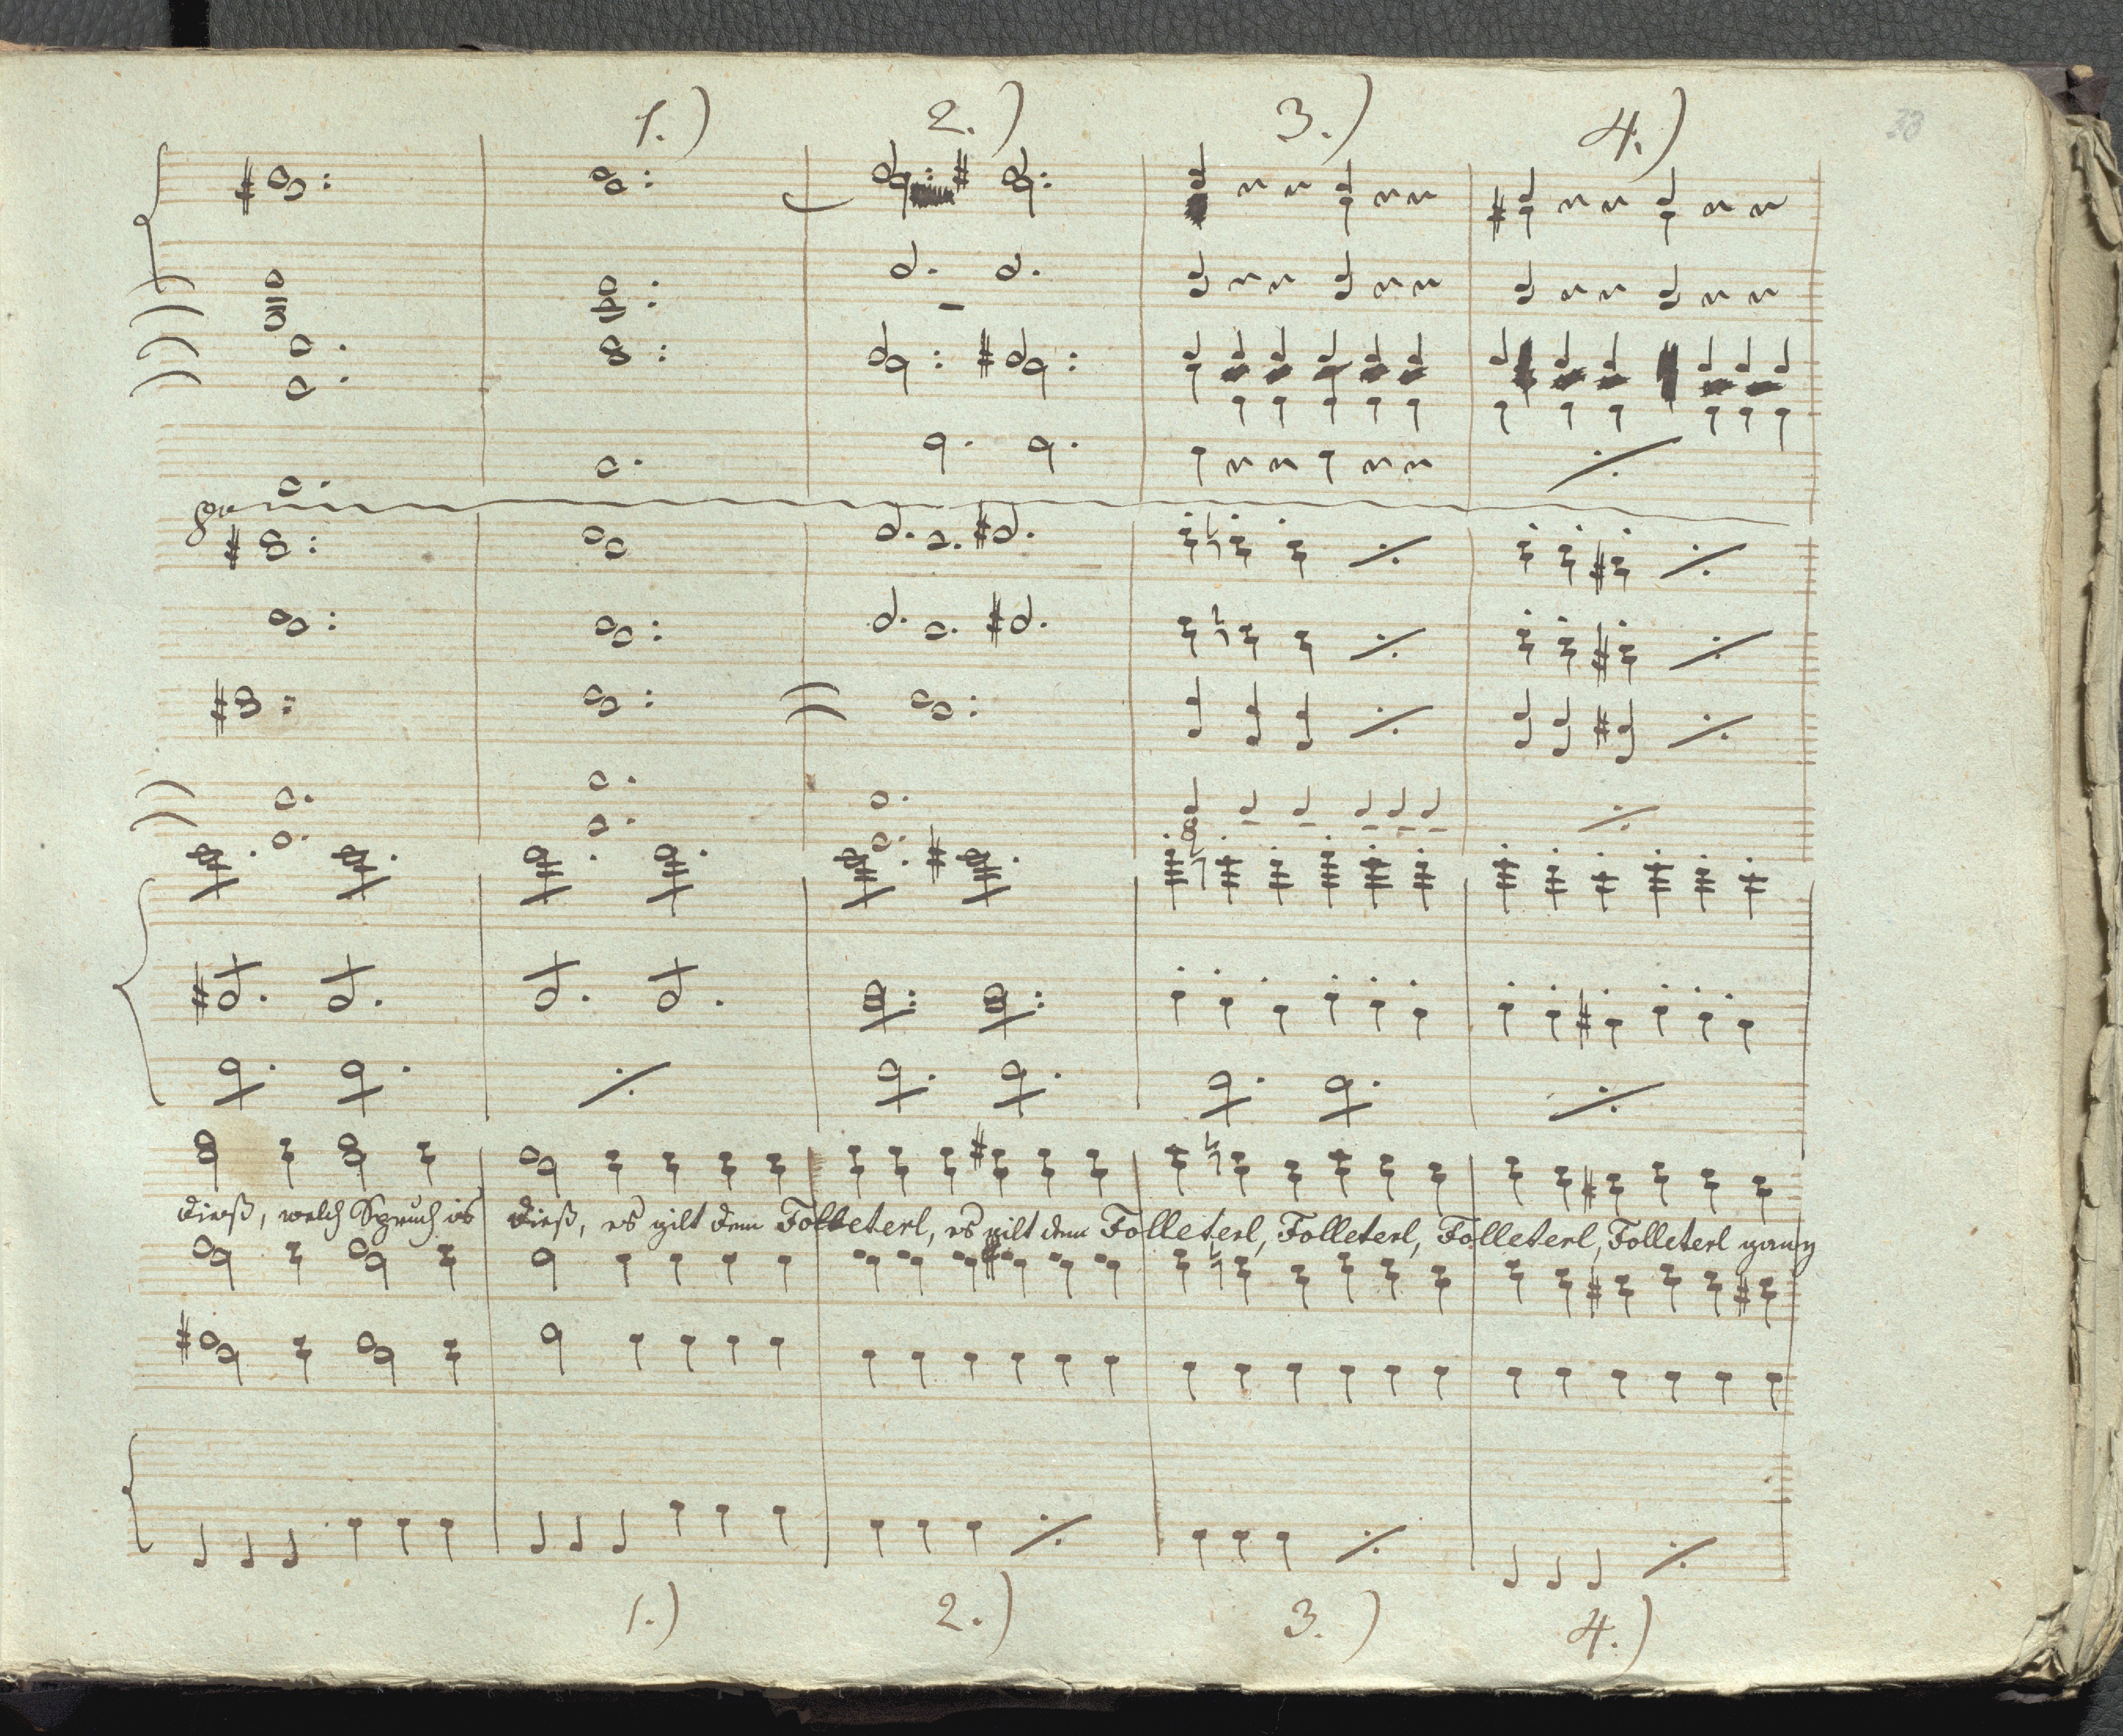 1.) 2.) 3.) 4.)
8va
dieß, welch Spruch is dieß, es gilt dem Folleterl, es gilt dem Folleterl, Folleterl, Folleterl, Folleterl ganz
1.) 2.) 3.) 4.)